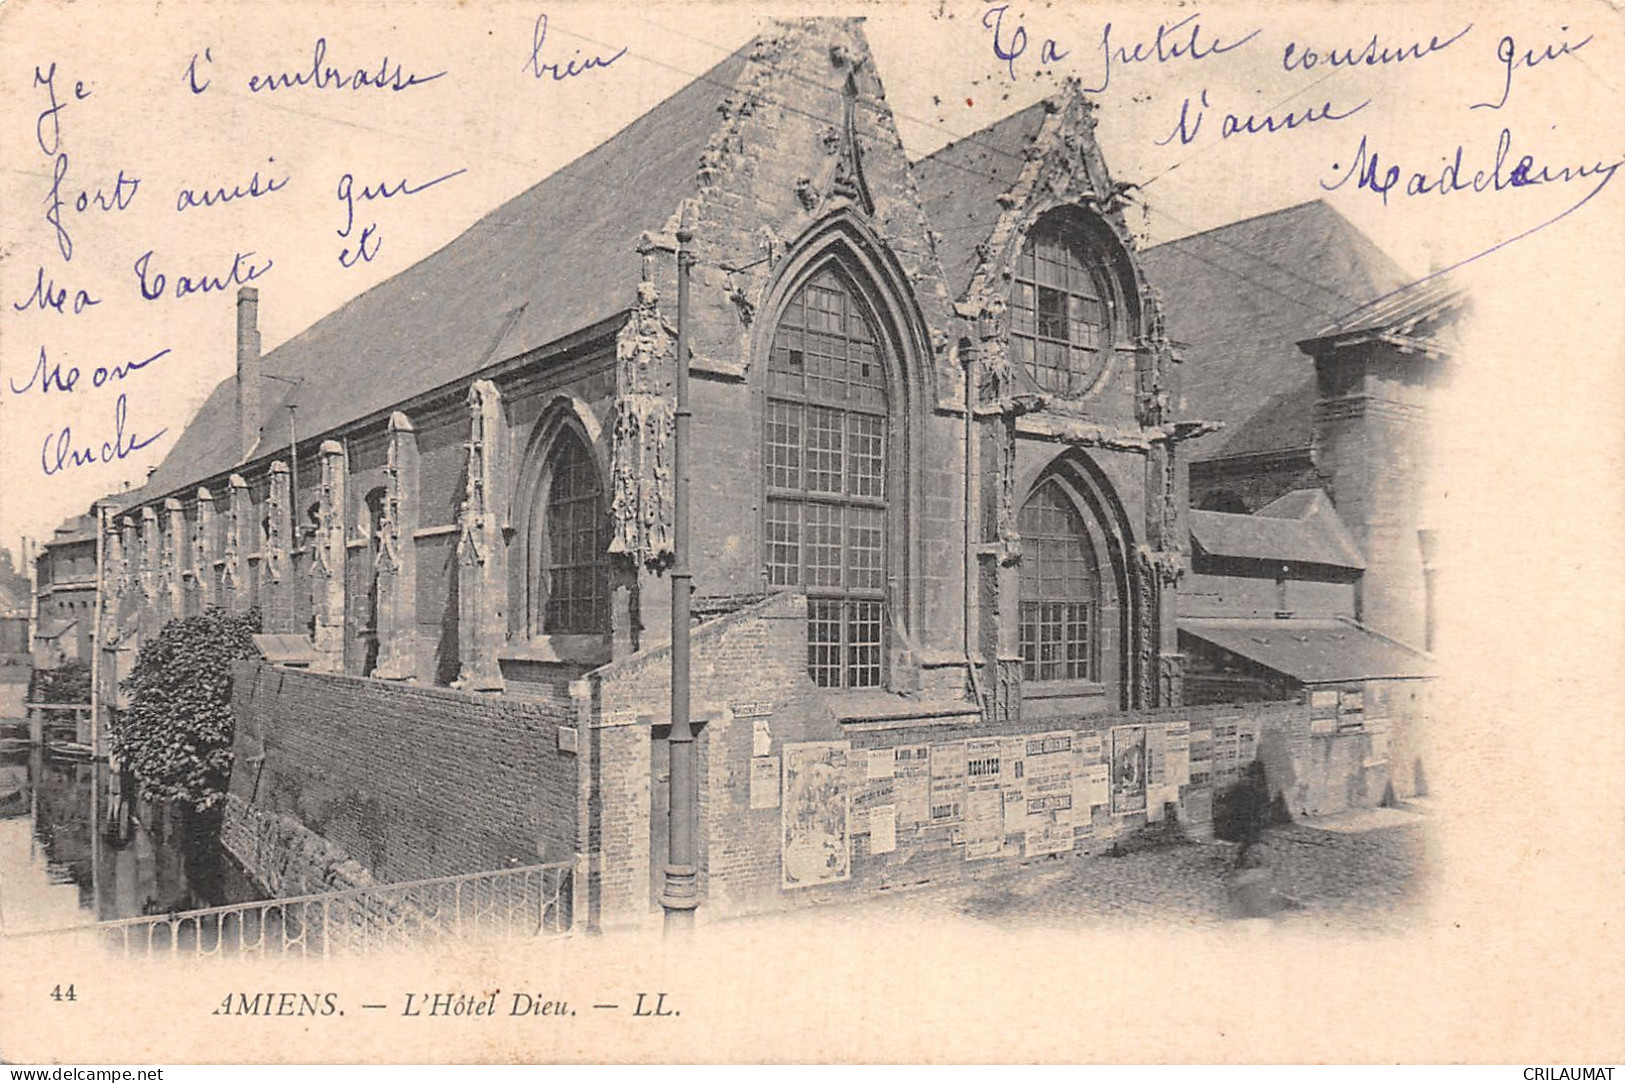 Je t'embrasse bien
fort ainsi que
Ma Tante et
Mon
Oncle
Ta petite cousine qui
t'aime
Madeleine
REGATES
44
AMIENS. — L'Hôtel Dieu. — LL.
www.delcampe.net
CRILAUMAT